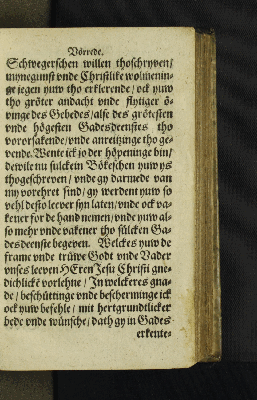 Vörrede.
Schwegerschen willen thoschryven/
mynegunst vnde Christlike wolmenin-
ge jegen yuw tho erklerende / ock yuw
tho gröter andacht vnde flytiger ö-
vinge des Gebedes / alse des grötesten
vnde högesten Gadesdeenstes tho
vororsakende / vnde anreitzinge tho ge-
vende. Wente ick jo der höpeninge bin /
dewile nu sulckein Bökeschen yuw ys
thogeschreven / vnde gy darmede van
my vorehret sind / gy werdent yuw so
vehl desto leever syn laten / vnde ock va-
kener for de hand nemen / vnde yuw al-
so mehr vnde vakener tho sülcken Ga-
desdeenste begeven. Welckes yuw de
frame vnde trüwe Godt vnde Vader
vnses leeven HEren Jesu Christi gne-
dichlick vorlehne / In welckeres gna-
de / beschüttinge vnde bescherminge ick
ock yuw befehle / mit hertgrundtlicker
bede vnde wünsche / dath gy in Gades
erkente-